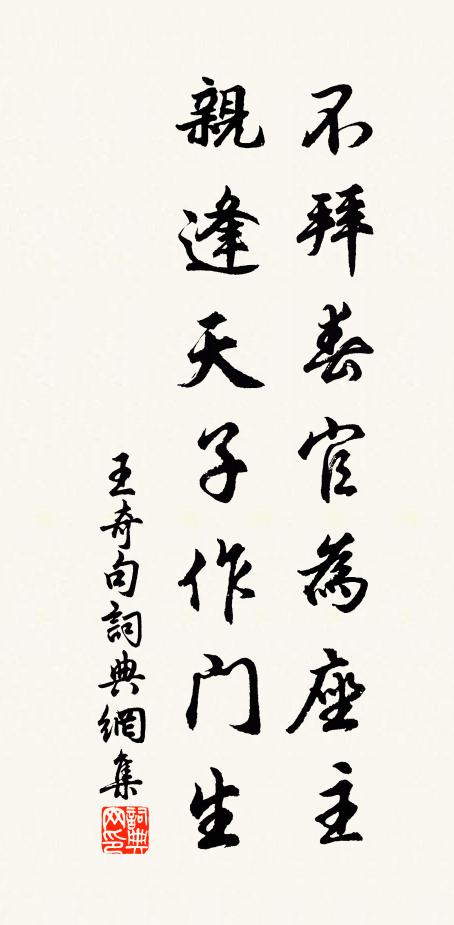 不拜春官為座主
親逢天子作門生
王奇句詞典網集
詞典
网印